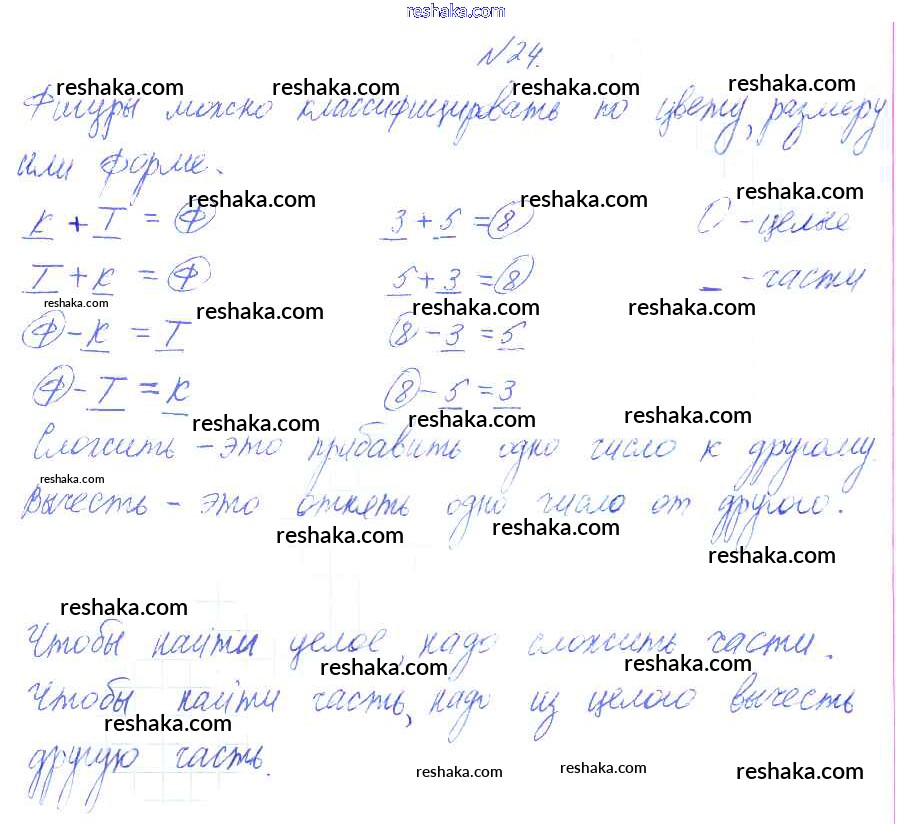 reshaka.com
№24.
reshaka.com reshaka.com reshaka.com reshaka.com
Фигуры можно классифицировать по цвету, размеру
или форме.
reshaka.com reshaka.com reshaka.com
К + Т = Ф 3 + 5 = 8 О - целые
Т + К = Ф 5 + 3 = 8 _ - части
reshaka.com reshaka.com reshaka.com reshaka.com
Ф - К = Т 8 - 3 = 5
Ф - Т = К 8 - 5 = 3
reshaka.com reshaka.com reshaka.com
Сложить - это прибавить одно число к другому.
reshaka.com
Вычесть - это отнять одно число от другого.
reshaka.com reshaka.com reshaka.com
reshaka.com
Чтобы найти целое, надо сложить части.
reshaka.com reshaka.com
Чтобы найти часть, надо из целого вычесть
reshaka.com
другую часть.
reshaka.com reshaka.com reshaka.com